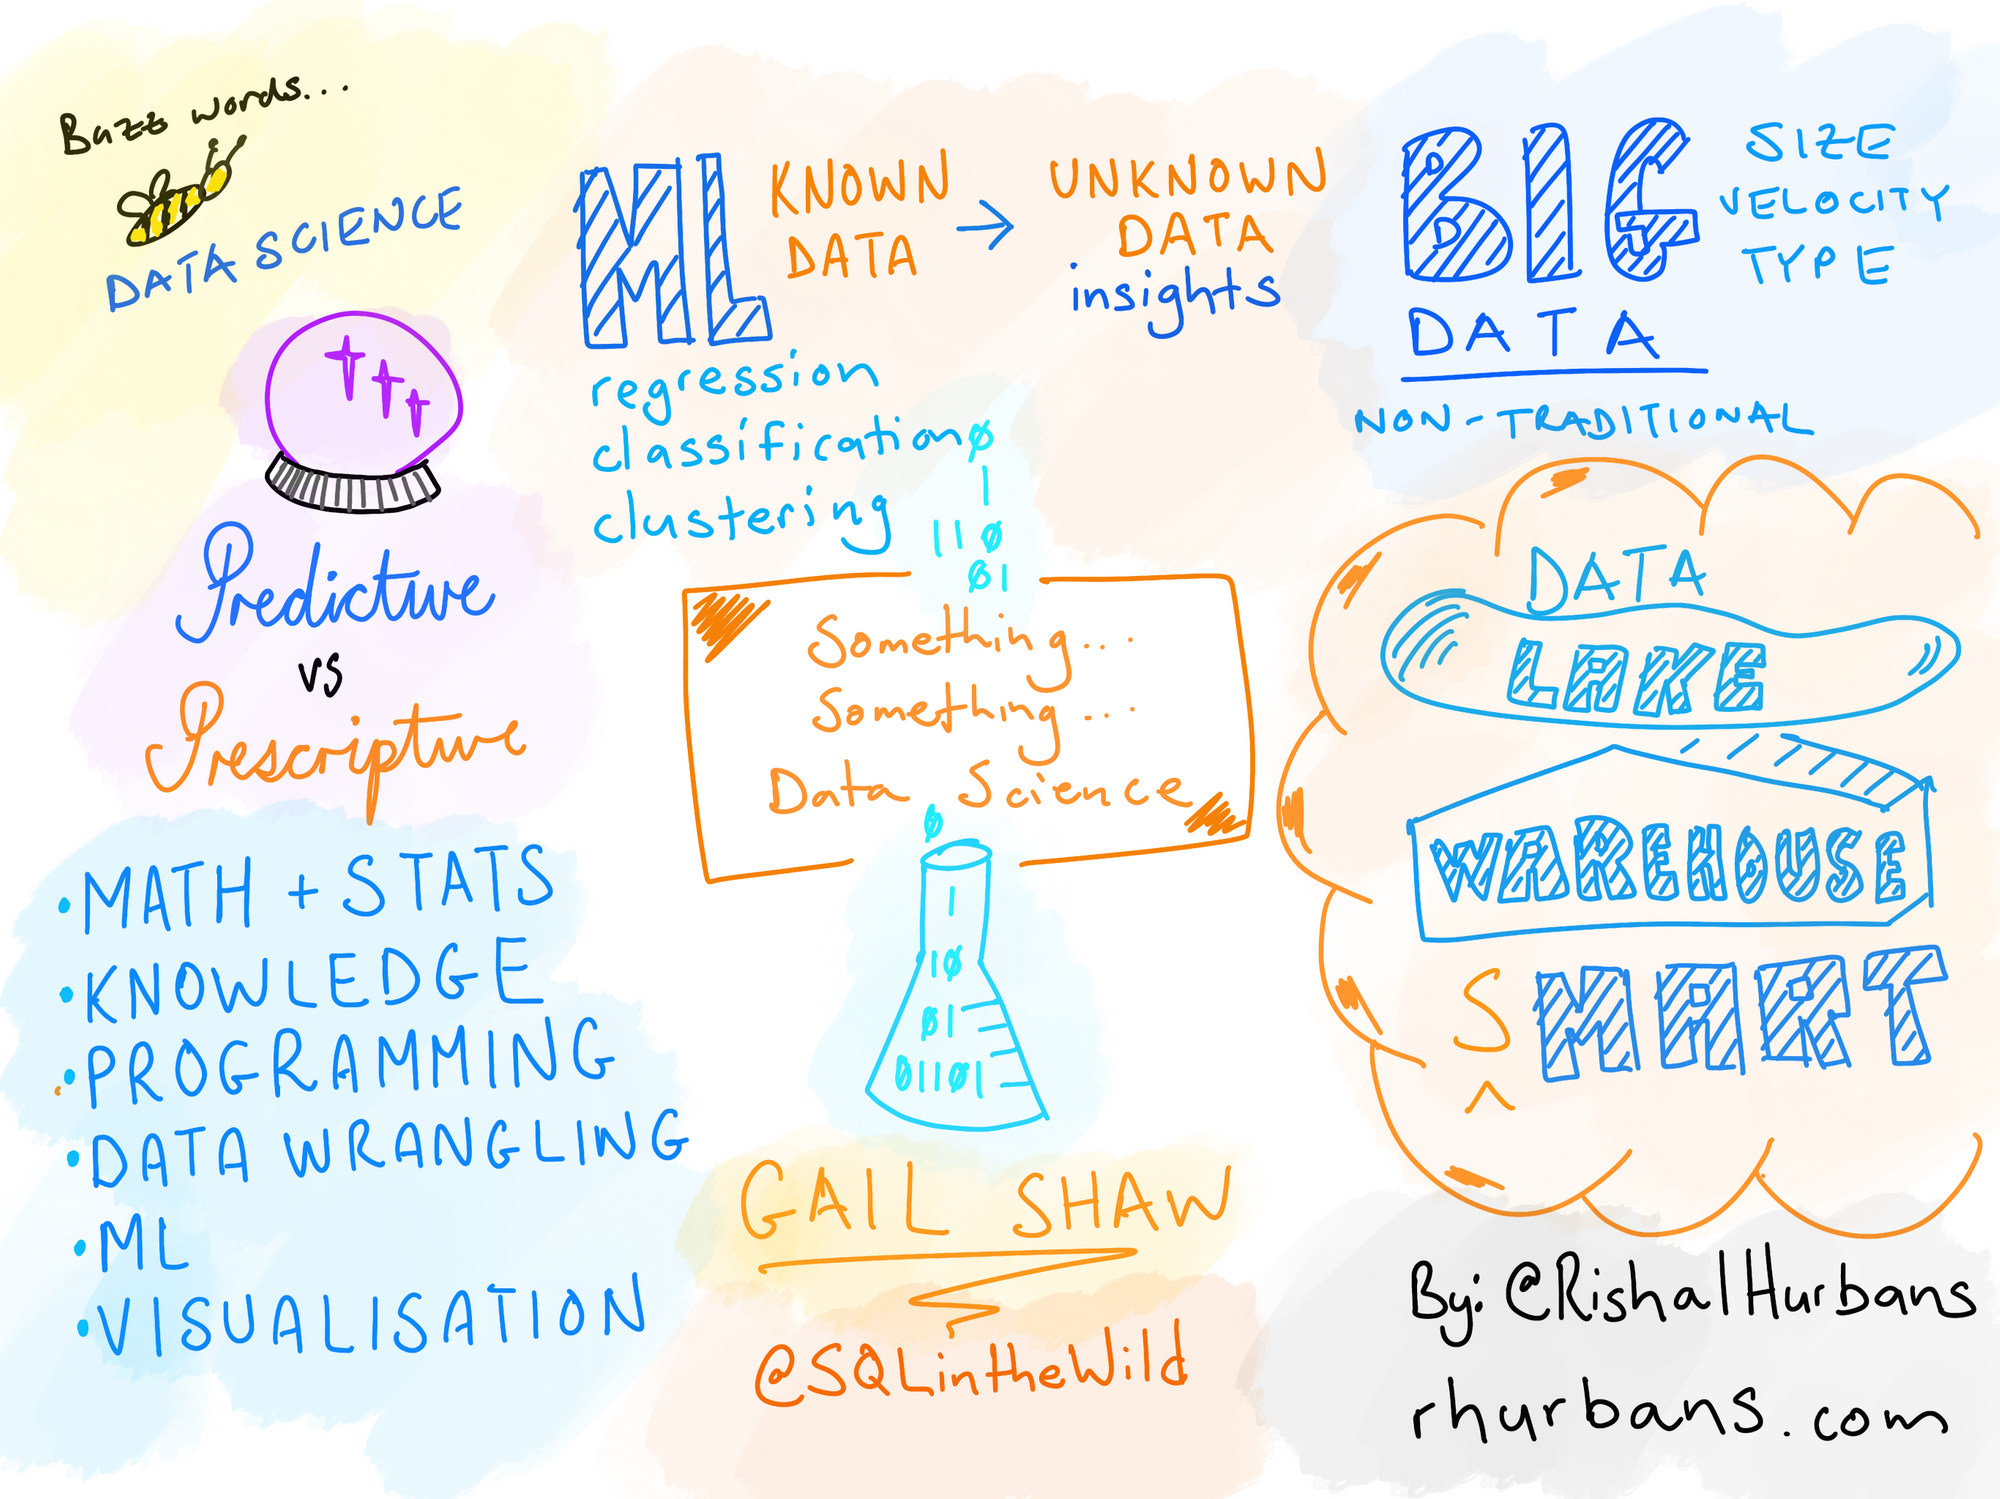 Buzz words...
DATA SCIENCE
Predictive
vs
Prescriptive
• MATH + STATS
• KNOWLEDGE
• PROGRAMMING
• DATA WRANGLING
• ML
• VISUALISATION
ML
KNOWN
DATA
→
UNKNOWN
DATA
insights
regression
classification
clustering
0
1
110
01
Something...
Something...
Data Science
0
1
10
01
01101
GAIL SHAW
@SQLintheWild
BIG
DATA
SIZE
VELOCITY
TYPE
NON-TRADITIONAL
DATA
LAKE
WAREHOUSE
S MART
^
By: @RishalHurbans
rhurbans.com